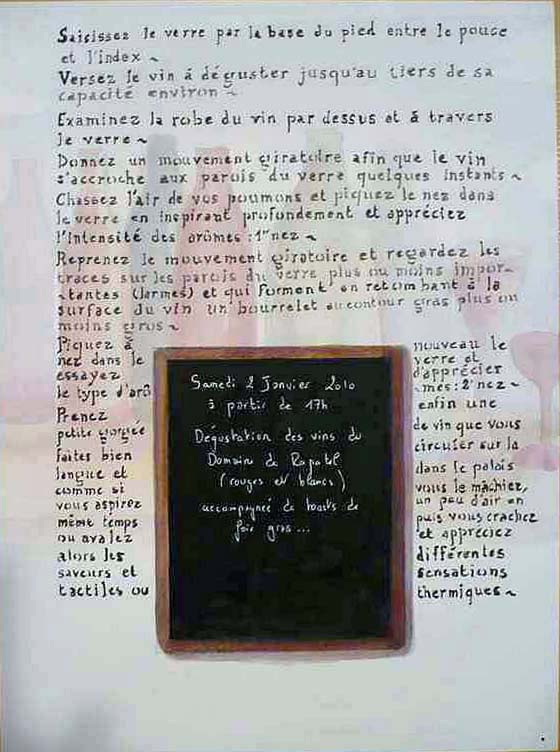 Saisissez le verre par la base du pied entre le pouce
et l'index ~
Versez le vin à déguster jusqu'au tiers de sa
capacité environ ~
Examinez la robe du vin par dessus et à travers
le verre ~
Donnez un mouvement giratoire afin que le vin
s'accroche aux parois du verre quelques instants ~
Chassez l'air de vos poumons et piquez le nez dans
le verre en inspirant profondement et appréciez
l'intensité des arômes : 1er nez ~
Reprenez le mouvement giratoire et regardez les
traces sur les parois du verre plus ou moins impor-
-tantes (larmes) et qui forment en retombant à la
surface du vin un bourrelet au contour gras plus ou
moins gros ~
Piquez à nouveau le
nez dans le verre et
essayez d'apprécier
le type d'arô -mes : 2e nez ~
Prenez enfin une
petite gorgée de vin que vous
faites bien circuler sur la
langue et dans le palais
comme si vous le mâchiez,
vous aspirez un peu d'air en
même temps puis vous crachez
ou avalez et appréciez
alors les différentes
saveurs et sensations
tactiles ou thermiques ~
Samedi 2 Janvier 2010
à partir de 17h
Dégustation des vins du
Domaine de Rapatel
(rouges et blancs)
accompagnée de toasts de
foie gras...